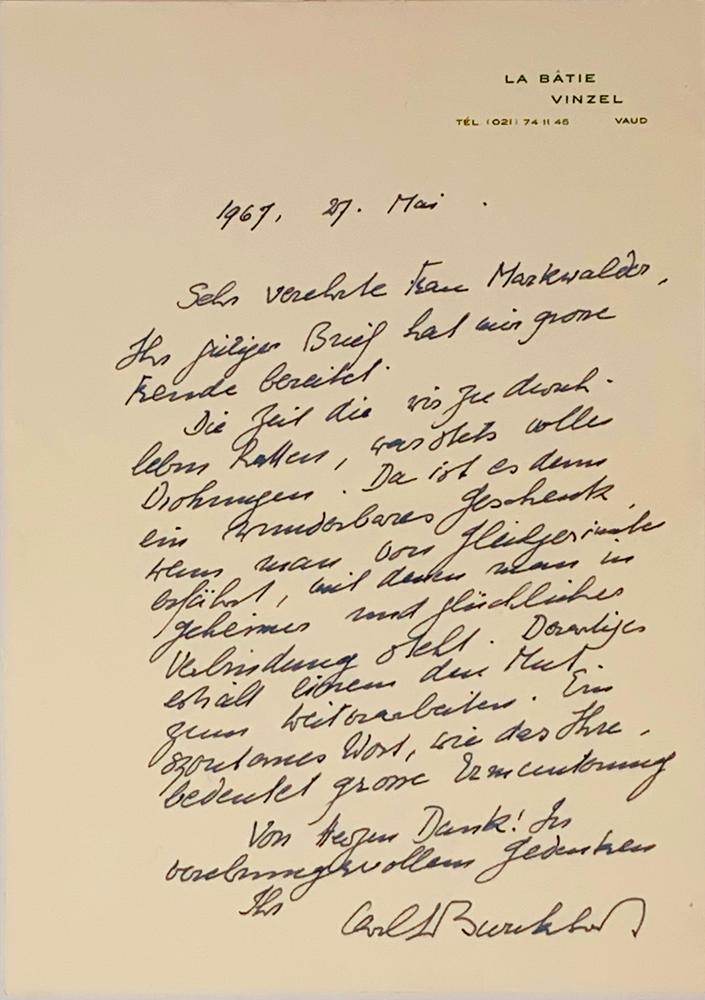 LA BÂTIE
VINZEL
TÉL. (021) 74 11 46 VAUD
1967, 27. Mai.
Sehr verehrte Frau Markwalder,
Ihr gütiger Brief hat mir grosse
Freude bereitet.
Die Zeit die wir zu durch-
leben hatten, war stets voller
Drohungen. Da ist es denn
ein wunderbares Geschenk,
wenn man von Gleichgesinnten
erfährt, mit denen man in
geheimer und glücklicher
Verbindung steht. Derartiges
erhält einem den Mut
zum weiterarbeiten. Ein
spontanes Wort, wie das Ihre,
bedeutet grosse Ermunterung
Von Herzen Dank! In
verehrungsvollem Gedenken
Ihr Carl J Burckhardt